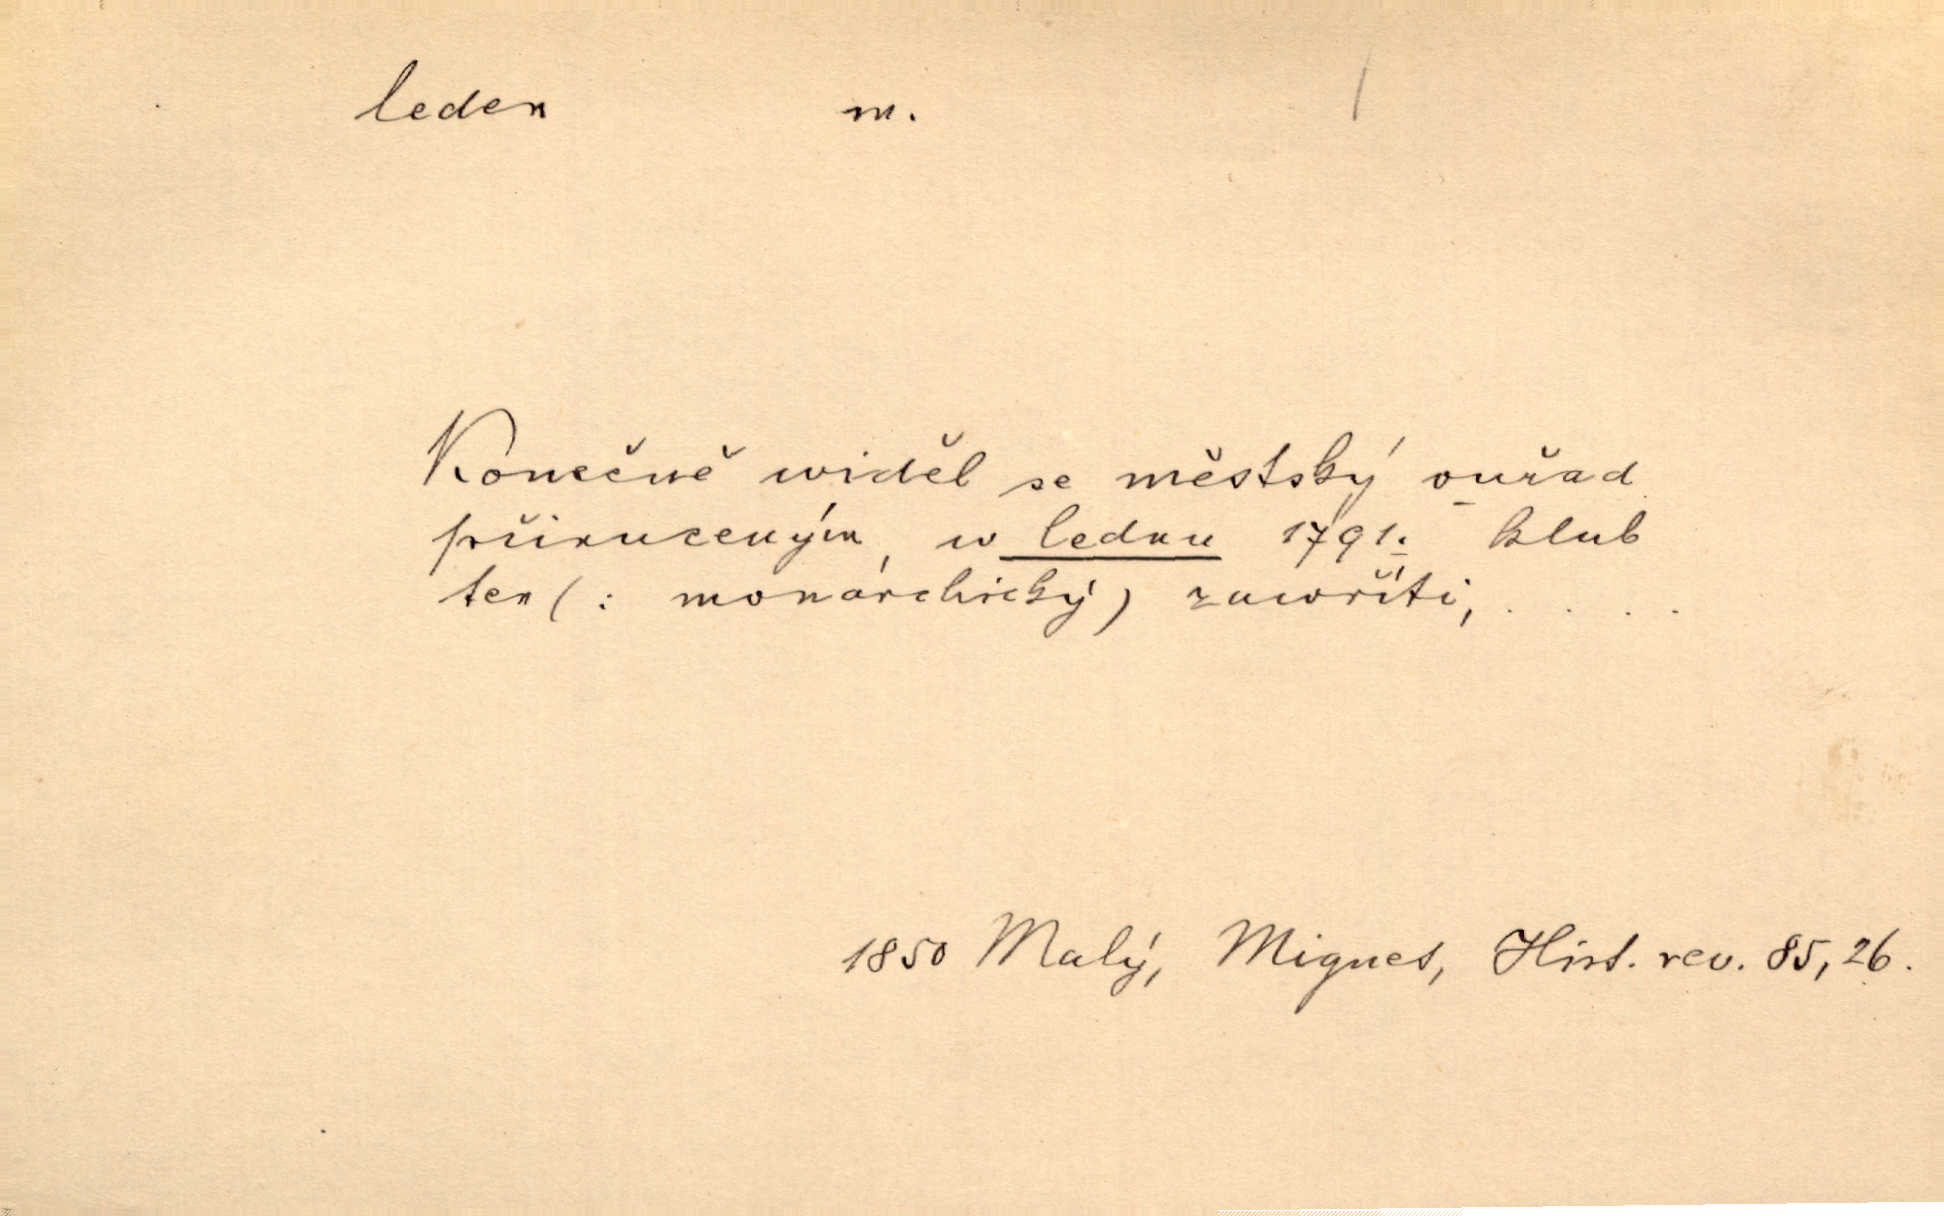 leden m. /
Konečně widěl se městský ouřad
přinuceným, w lednu 1791. klub
ten (: monarchický) zawříti, . . . .
1850 Malý, Mignet, Hist. rev. 85, 26.